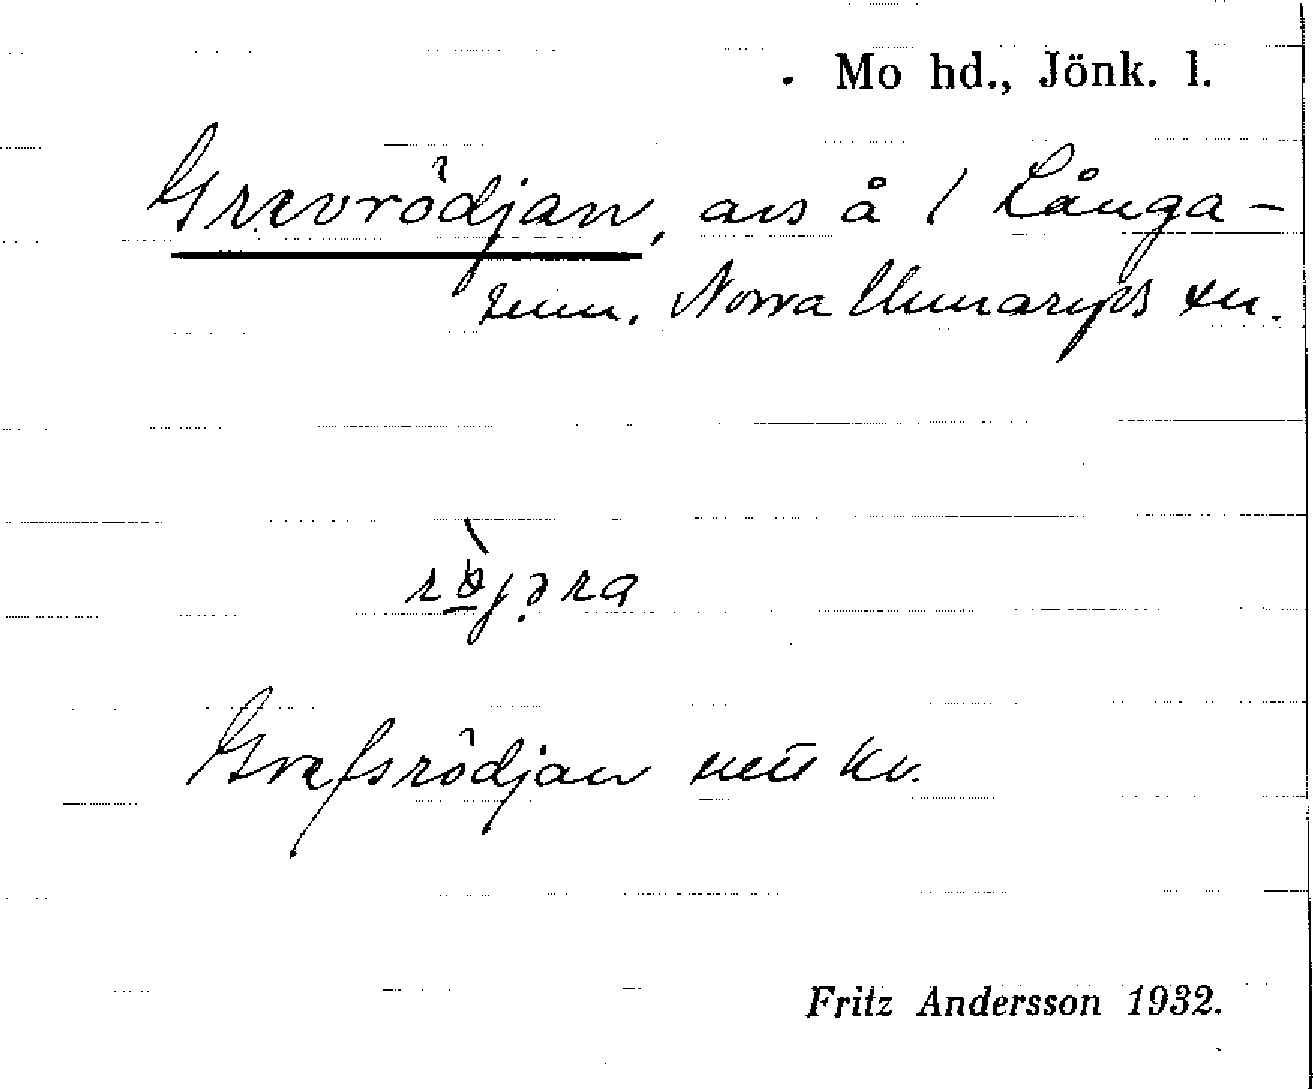 . Mo hd., Jönk. l.
Grævrödjan, avs å 1 Långa-
rum. Norra Unnaryds sn.
Grafsrödjan
Fritz Andersson 1932.